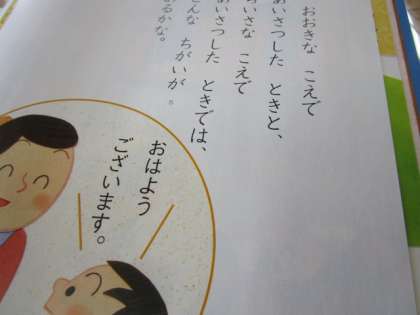 おおきな こえで
あいさつした ときと、
ちいさな こえで
あいさつした ときでは、
どんな ちがいが
あるかな。
おはよう
ございます。